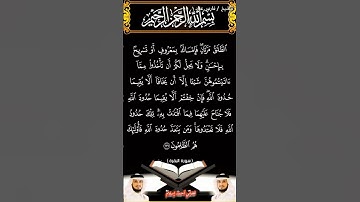 بسم الله الرحمن الرحيم
ٱلطَّلَٰقُ مَرَّتَانِ فَإِمْسَاكُۢ بِمَعْرُوفٍ أَوْ تَسْرِيحُۢ
بِإِحْسَٰنٍ وَلَا يَحِلُّ لَكُمْ أَن تَأْخُذُوا۟ مِمَّآ
ءَاتَيْتُمُوهُنَّ شَيْـًٔا إِلَّآ أَن يَخَافَآ أَلَّا يُقِيمَا
حُدُودَ ٱللَّهِ فَإِنْ خِفْتُمْ أَلَّا يُقِيمَا حُدُودَ ٱللَّهِ
فَلَا جُنَاحَ عَلَيْهِمَا فِيمَا ٱفْتَدَتْ بِهِۦ تِلْكَ حُدُودُ
ٱللَّهِ فَلَا تَعْتَدُوهَا وَمَن يَتَعَدَّ حُدُودَ ٱللَّهِ فَأُو۟لَٰٓئِكَ
هُمُ ٱلظَّٰلِمُونَ
(سورة البقرة)